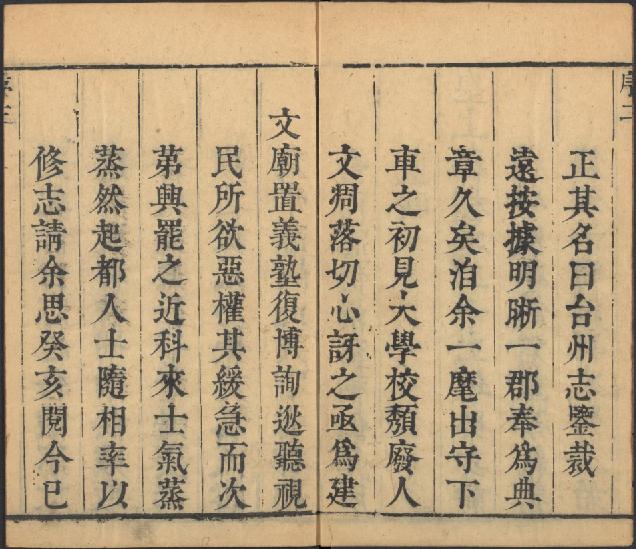 正其名曰台州志鑒裁
遠按據明晰一郡奉為典
章久矣洎余一麾出守下
車之初見大學校頽廢人
文凋落切心訝之亟爲建
文廟置義塾復博詢逖聽視
民所欲惡權其緩急而次
第興罷之近科來士氣蒸
蒸然起都人士隨相率以
修志請余思癸亥閱今已
序二